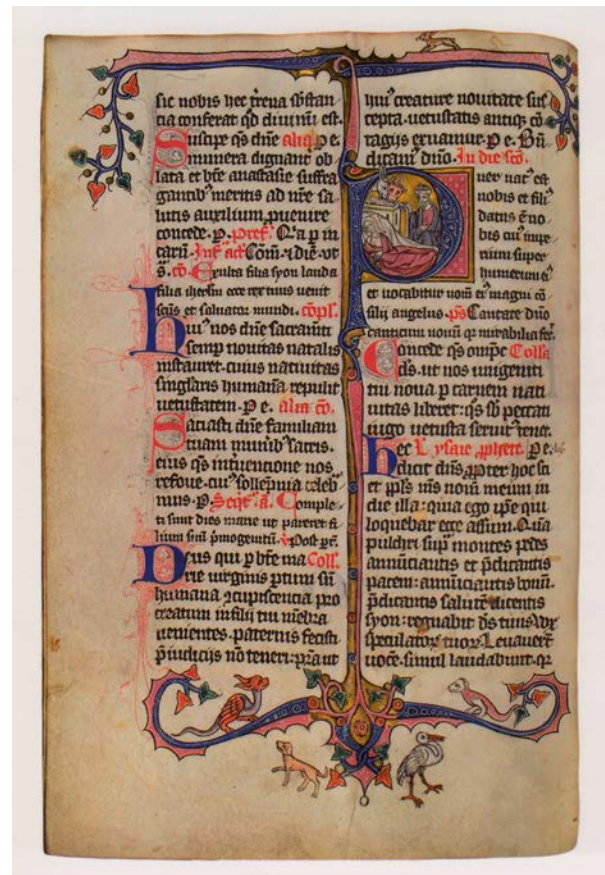 sic nobis hec
tia conferat qd diuinū est.
Suscipe qs dñe aliq. p e.
munera dignant ob
lata et bte anastasie suffra
gantib' meritis ad nre sa
lutis auxilium puenire
concede. p. pref. Q'a p in
carñ. Inf' act' Cōm. 
Exulta filia syon lauda
filia ihrlm ecce rex tuus uenit
scūs et saluator mundi. cōpl.
Hui' nos dñe sacramti
semp nouitas natalis
instauret. cuius natiuitas
singlaris humanā repulit
uetustatem. p e. alia cō.
Saciasti dñe familiam
tuam munib' sacris.
eius qs interuencione nos
refoue. cui' sollēpnia celeb
mus. p. Seqr. a. Comple
ti sunt dies marie ut pareret fi
lium suū p̄mogenitū. Post pt.
Deus qui p bte ma Coll.
rie uirginis ptum sñ
humana 9cupiscencia pro
creatum in filij tui mēbra
uenientes. paternis fecisti
p̄iudicijs nō teneri. 
hui' creature nouitate sus
cepta. uetustatis antiq cō
tagijs exuamur. p e. Bñ
dicam' dño. In die scō.
Puer nat' est
nobis et fili'
datus ē no
bis cui' impe
rium super
humerum ei'
et uocabitur nom̄ ei' magni cō
silij angelus. ps Cantate dño
canticum nouū qr mirabilia fec.
Concede qs omps Collā
ds. ut nos unigeniti
tui noua p carnem nati
uitas liberet: qs sb peccati
iugo uetusta seruit' tenet.
Hec Lysaie pphete. p e.
dicit dñs. ppter hoc sci
et ppls m̄s nom̄ meum in
die illa: quia ego ipe qui
loquebar ecce assum. Q'ua
pulchri sup montes pedes
annūciantis et p̄dicantis
pacem: annūciantis bonū.
p̄dicantis salutē dicentis
syon: regnabit ds tuus Vox
speculator tuor. Leuauert
uocē. simul laudabunt. qr